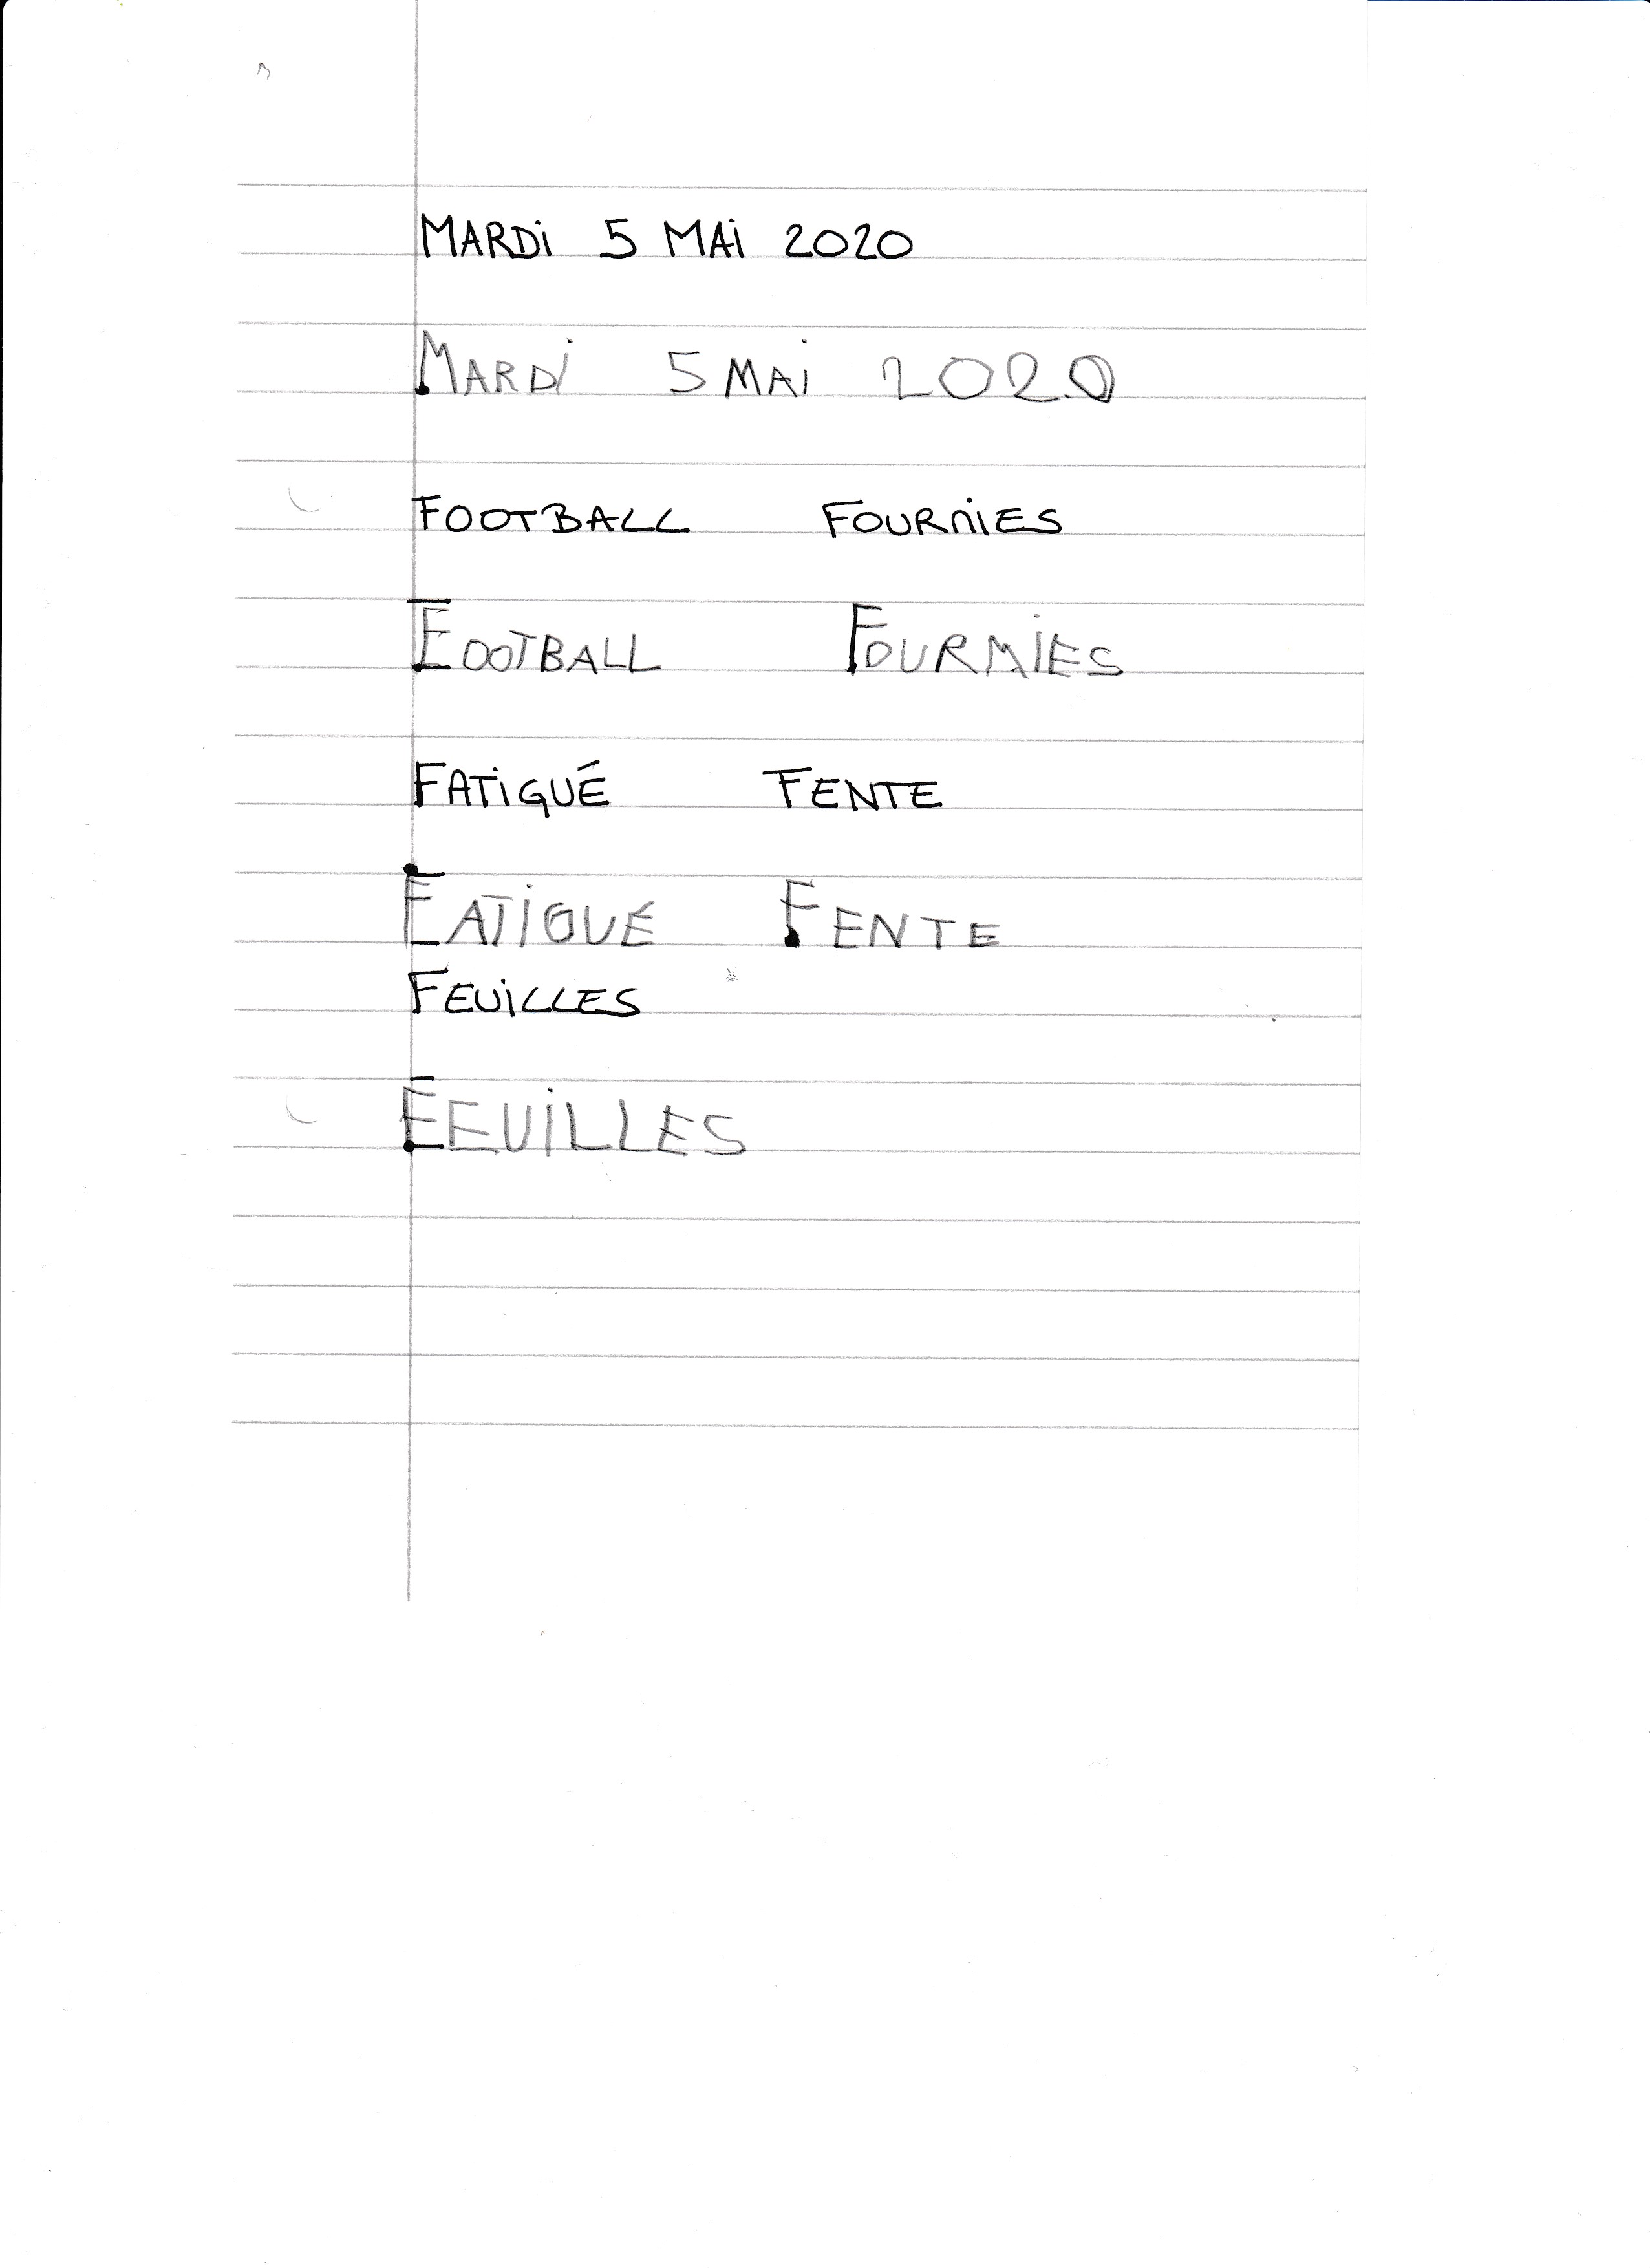 MARDi 5 MAi 2020
MARDi 5 MAi 2020
FOOTBALL FOURMiES
FOOTBALL FOURMiES
FATiGUÉ FENTE
FATiGUÉ FENTE
FEUiLLES
FEUiLLES